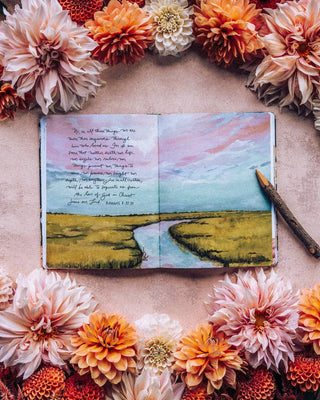 No, in all these things we are
more than conquerors through
him who loved us. For I am
sure that neither death nor life,
nor angels nor rulers, nor
things present nor things to
come, nor powers, nor height nor
depth, nor anything else in all creation,
will be able to separate us from
the love of God in Christ
Jesus our Lord. ROMANS 8:37-39